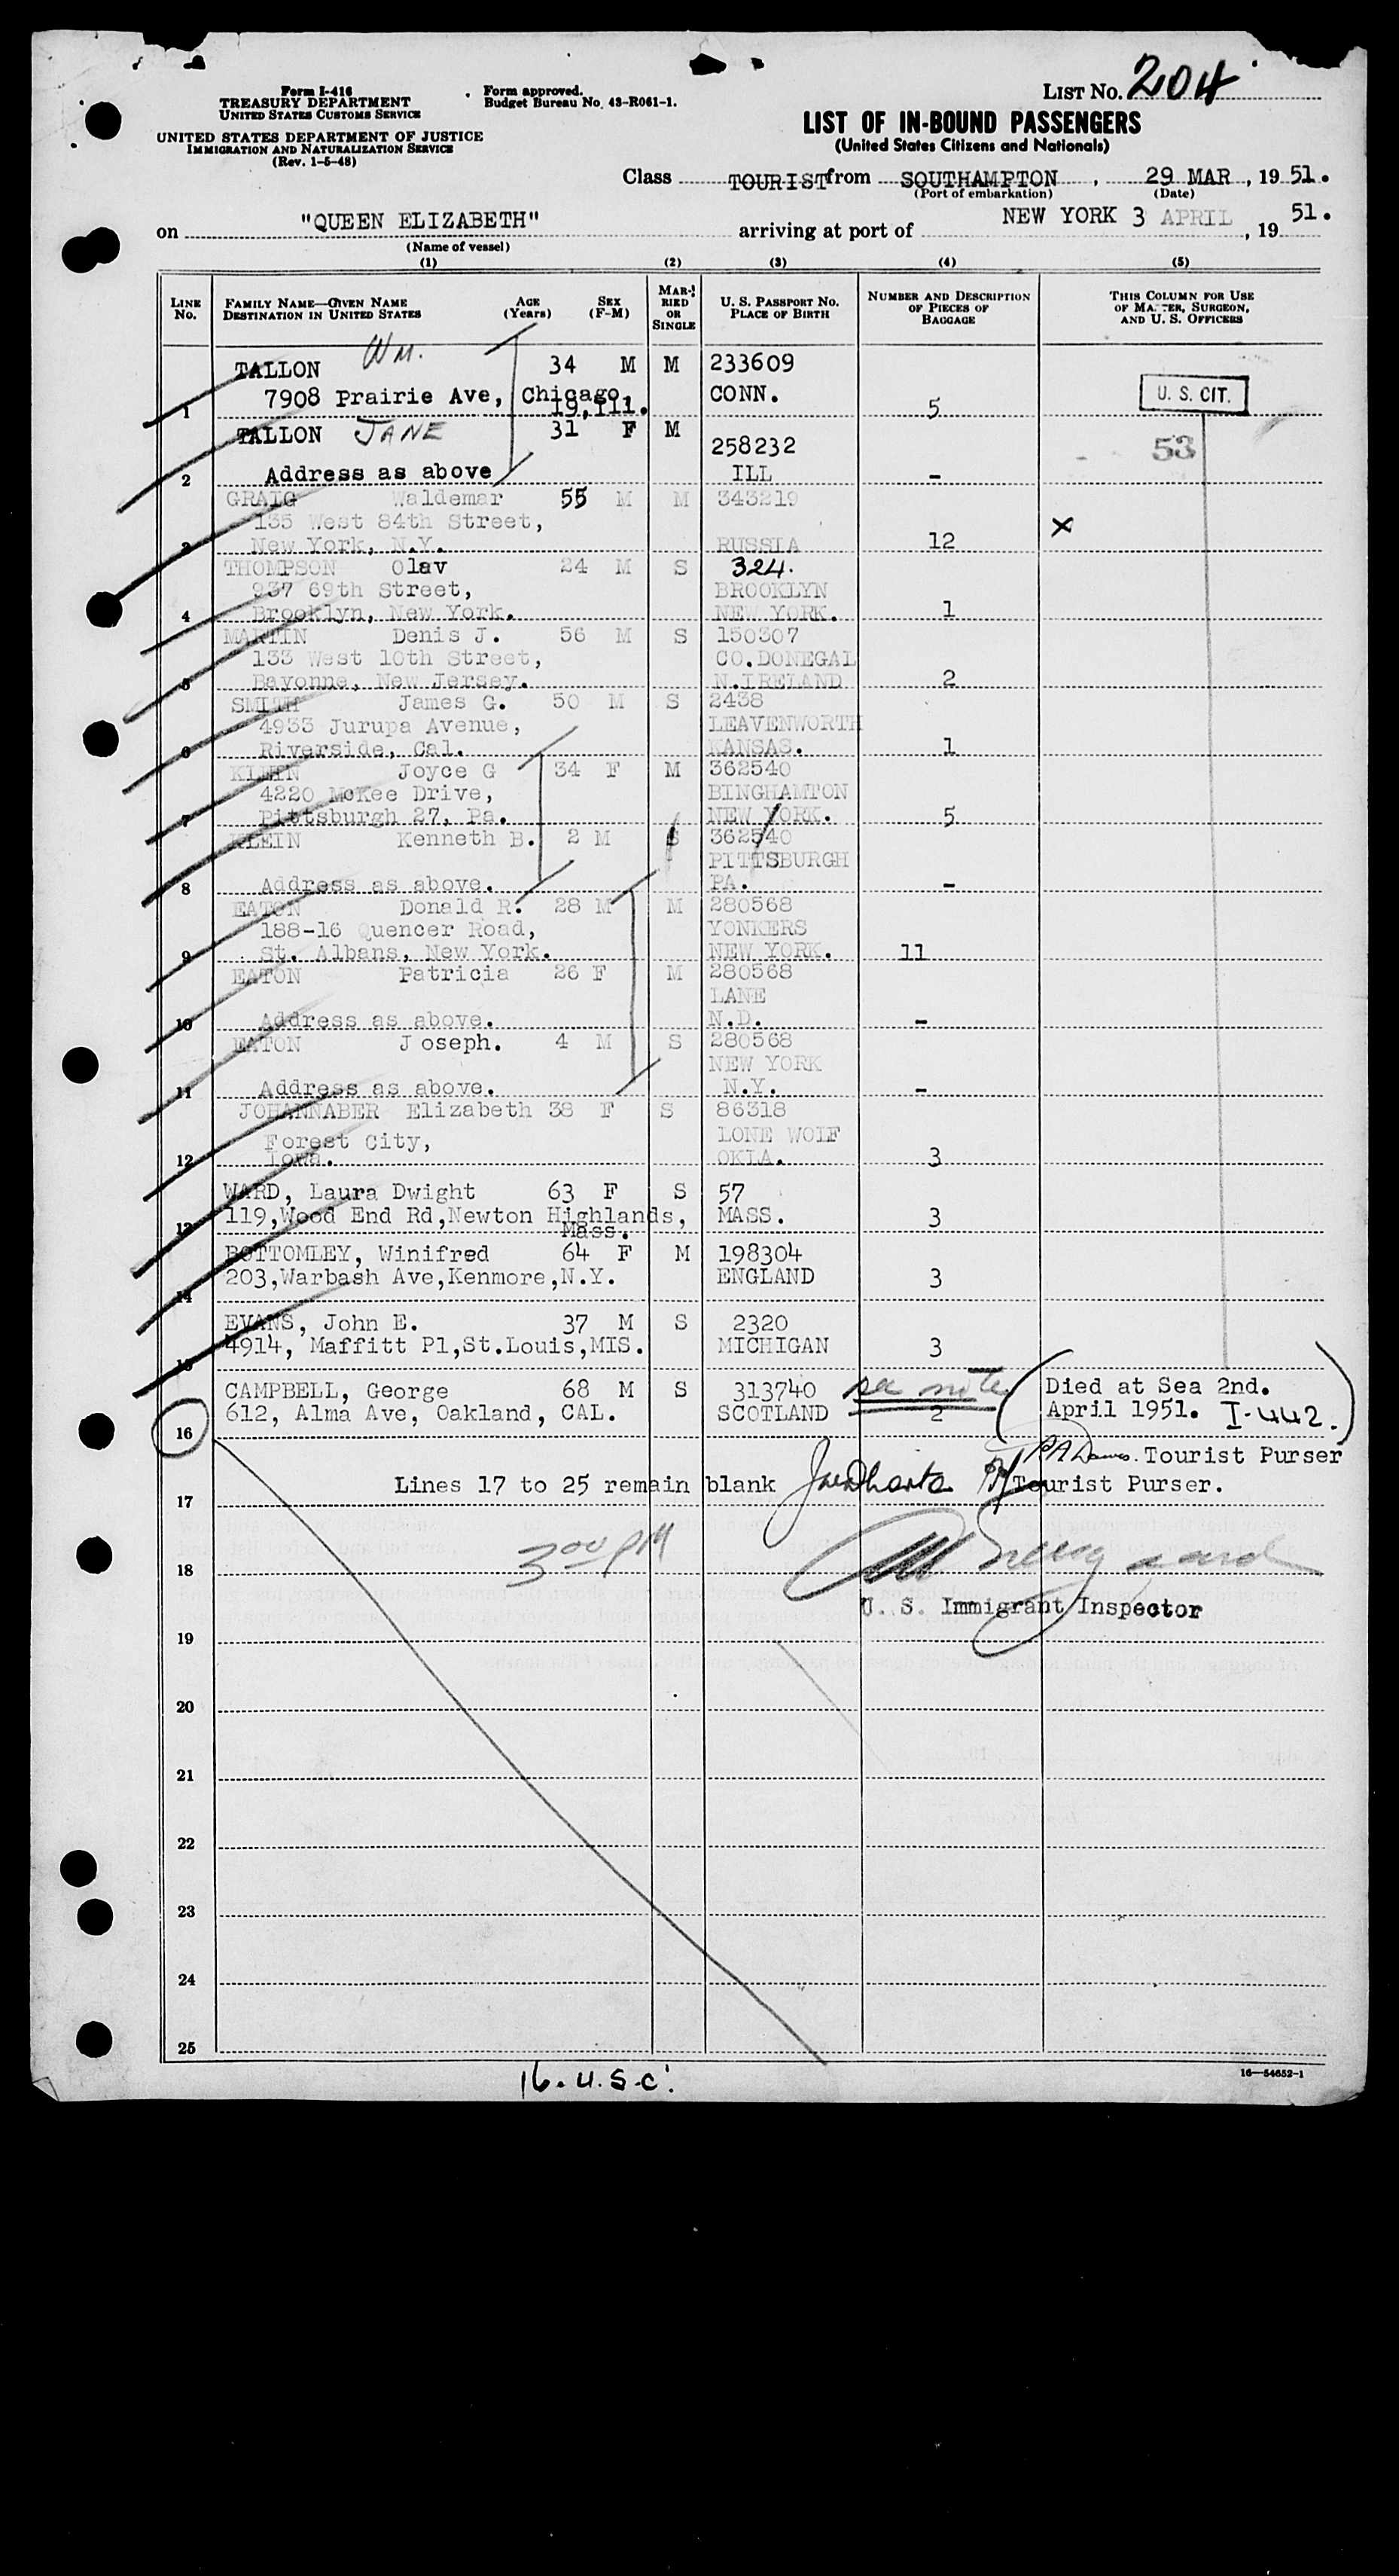 Form I-416
TREASURY DEPARTMENT
UNITED STATES CUSTOMS SERVICE
UNITED STATES DEPARTMENT OF JUSTICE
IMMIGRATION AND NATURALIZATION SERVICE
(Rev. 1-5-48)
Form approved.
Budget Bureau No. 43-R061-1.
LIST NO. 204
LIST OF IN-BOUND PASSENGERS
(United States Citizens and Nationals)
Class TOURIST from SOUTHAMPTON, 29 MAR, 1951.
(Port of embarkation) (Date)
on "QUEEN ELIZABETH" arriving at port of NEW YORK 3 APRIL, 1951.
(Name of vessel)
(1) (2) (3) (4) (5)
LINE NO.
FAMILY NAME—GIVEN NAME
DESTINATION IN UNITED STATES
AGE (Years)
SEX (F-M)
MARRIED OR SINGLE
U. S. PASSPORT NO.
PLACE OF BIRTH
NUMBER AND DESCRIPTION OF PIECES OF BAGGAGE
THIS COLUMN FOR USE OF MASTER, SURGEON, AND U. S. OFFICERS
TALLON Wm. 34 M M 233609
7908 Prairie Ave, Chicago CONN.
1 19, Ill. 5 U. S. CIT.
TALLON JANE 31 F M
258232 53
2 Address as above ILL -
GRAIG Waldemar 55 M M 343219
135 West 84th Street, X
3 New York, N.Y. RUSSIA 12
THOMPSON Olav 24 M S 324.
937 69th Street, BROOKLYN
4 Brooklyn, New York. NEW YORK. 1
MARTIN Denis J. 56 M S 150307
133 West 10th Street, CO.DONEGAL
5 Bayonne, New Jersey. N.IRELAND 2
SMITH James G. 50 M S 2438
4933 Jurupa Avenue, LEAVENWORTH
6 Riverside, Cal. KANSAS. 1
KLEIN Joyce G 34 F M 362540
4220 McKee Drive, BINGHAMTON
7 Pittsburgh 27, Pa. NEW YORK. 5
KLEIN Kenneth B. 2 M S 362540
PITTSBURGH
8 Address as above. PA. -
EATON Donald R. 28 M M 280568
188-16 Quencer Road, YONKERS
9 St. Albans, New York. NEW YORK. 11
EATON Patricia 26 F M 280568
LANE
10 Address as above. N.D. -
EATON Joseph. 4 M S 280568
NEW YORK
11 Address as above. N.Y. -
JOHANNABER Elizabeth 38 F S 86318
Forest City, LONE WOLF
12 Iowa. OKLA. 3
WARD, Laura Dwight 63 F S 57
119,Wood End Rd,Newton Highlands, MASS. 3
13 Mass.
BOTTOMLEY, Winifred 64 F M 198304
203,Warbash Ave,Kenmore,N.Y. ENGLAND 3
14
EVANS, John E. 37 M S 2320
4914, Maffitt Pl,St.Louis,MIS. MICHIGAN 3
15
CAMPBELL, George 68 M S 313740 see note Died at Sea 2nd.
612, Alma Ave, Oakland, CAL. SCOTLAND 2 April 1951. I-442.
16
Tourist Purser
Lines 17 to 25 remain blank Tourist Purser.
17
3 00 PM
18
U. S. Immigrant Inspector
19
20
21
22
23
24
25
16. U.S.C.
16—54652-1